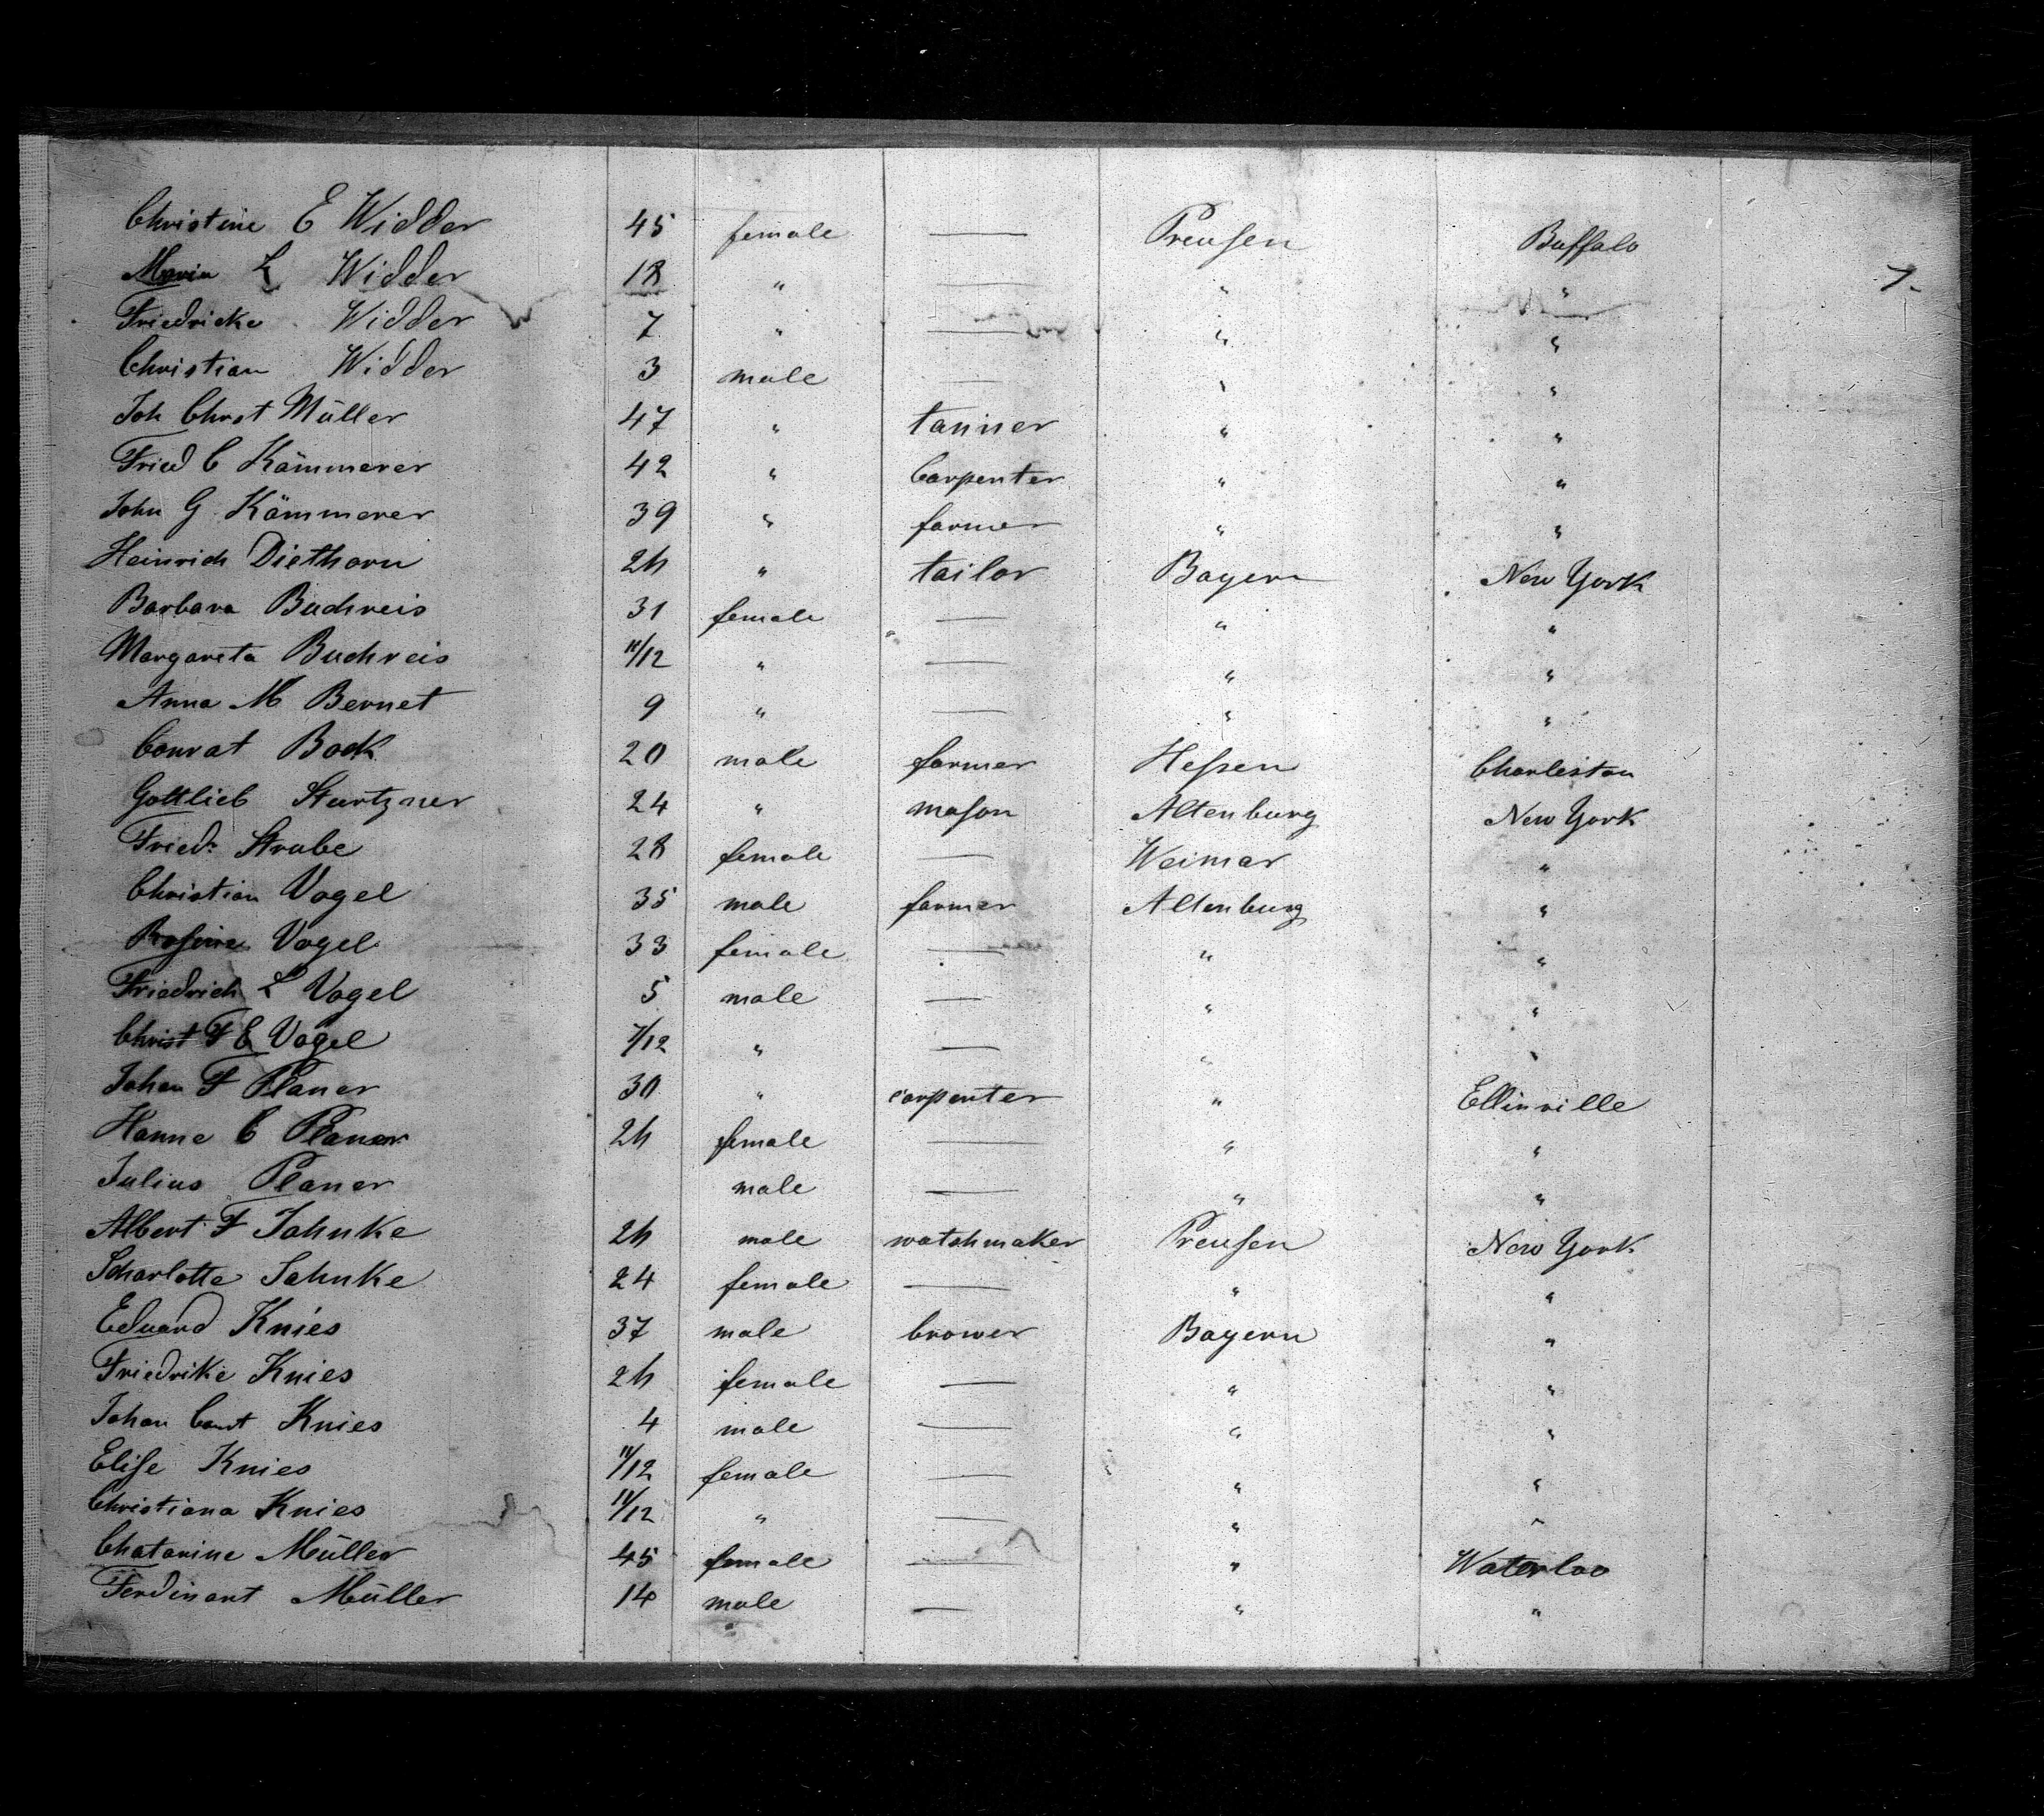 Christine E Widder 45 female — Preußen Buffalo
Maria L Widder 18 " — " " 7.
Friedricke Widder 7 " — " "
Christian Widder 3 male — " "
Joh Christ Müller 47 " tanner " "
Fried C Kämmerer 42 " Carpenter " "
John G Kämmerer 39 " farmer " "
Heinrich Diethorn 2h " tailor Bayern New York
Barbara Buchreis 31 female — " "
Margareta Buchreis 11/12 " — " "
Anna M Bernet 9 " — " "
Conrat Bock 20 male farmer Heßen Charleston
Gottlieb Sturtzner 24 " maſon Altenburg New York
Friedr Strube 28 female — Weimar "
Christian Vogel 35 male farmer Altenburg "
Roſine Vogel 33 female — " "
Friedrich L Vogel 5 male — " "
Christ F E Vogel 7/12 " — " "
Johan F Planer 30 " carpenter " Ellinville
Hanne C Planer 2h female — " "
Julius Planer male — " "
Albert F Jahnke 2h male watchmaker Preußen New York
Scharlotte Jahnke 24 female — " "
Eduard Knies 37 male brower Bayern "
Friedrike Knies 2h female — " "
Johan Knies 4 male — " "
Eliſe Knies 11/12 female — " "
Christiana Knies 11/12 " — " "
Chatarine Müller 45 female — " Waterloo
Ferdinant Müller 14 male — " "